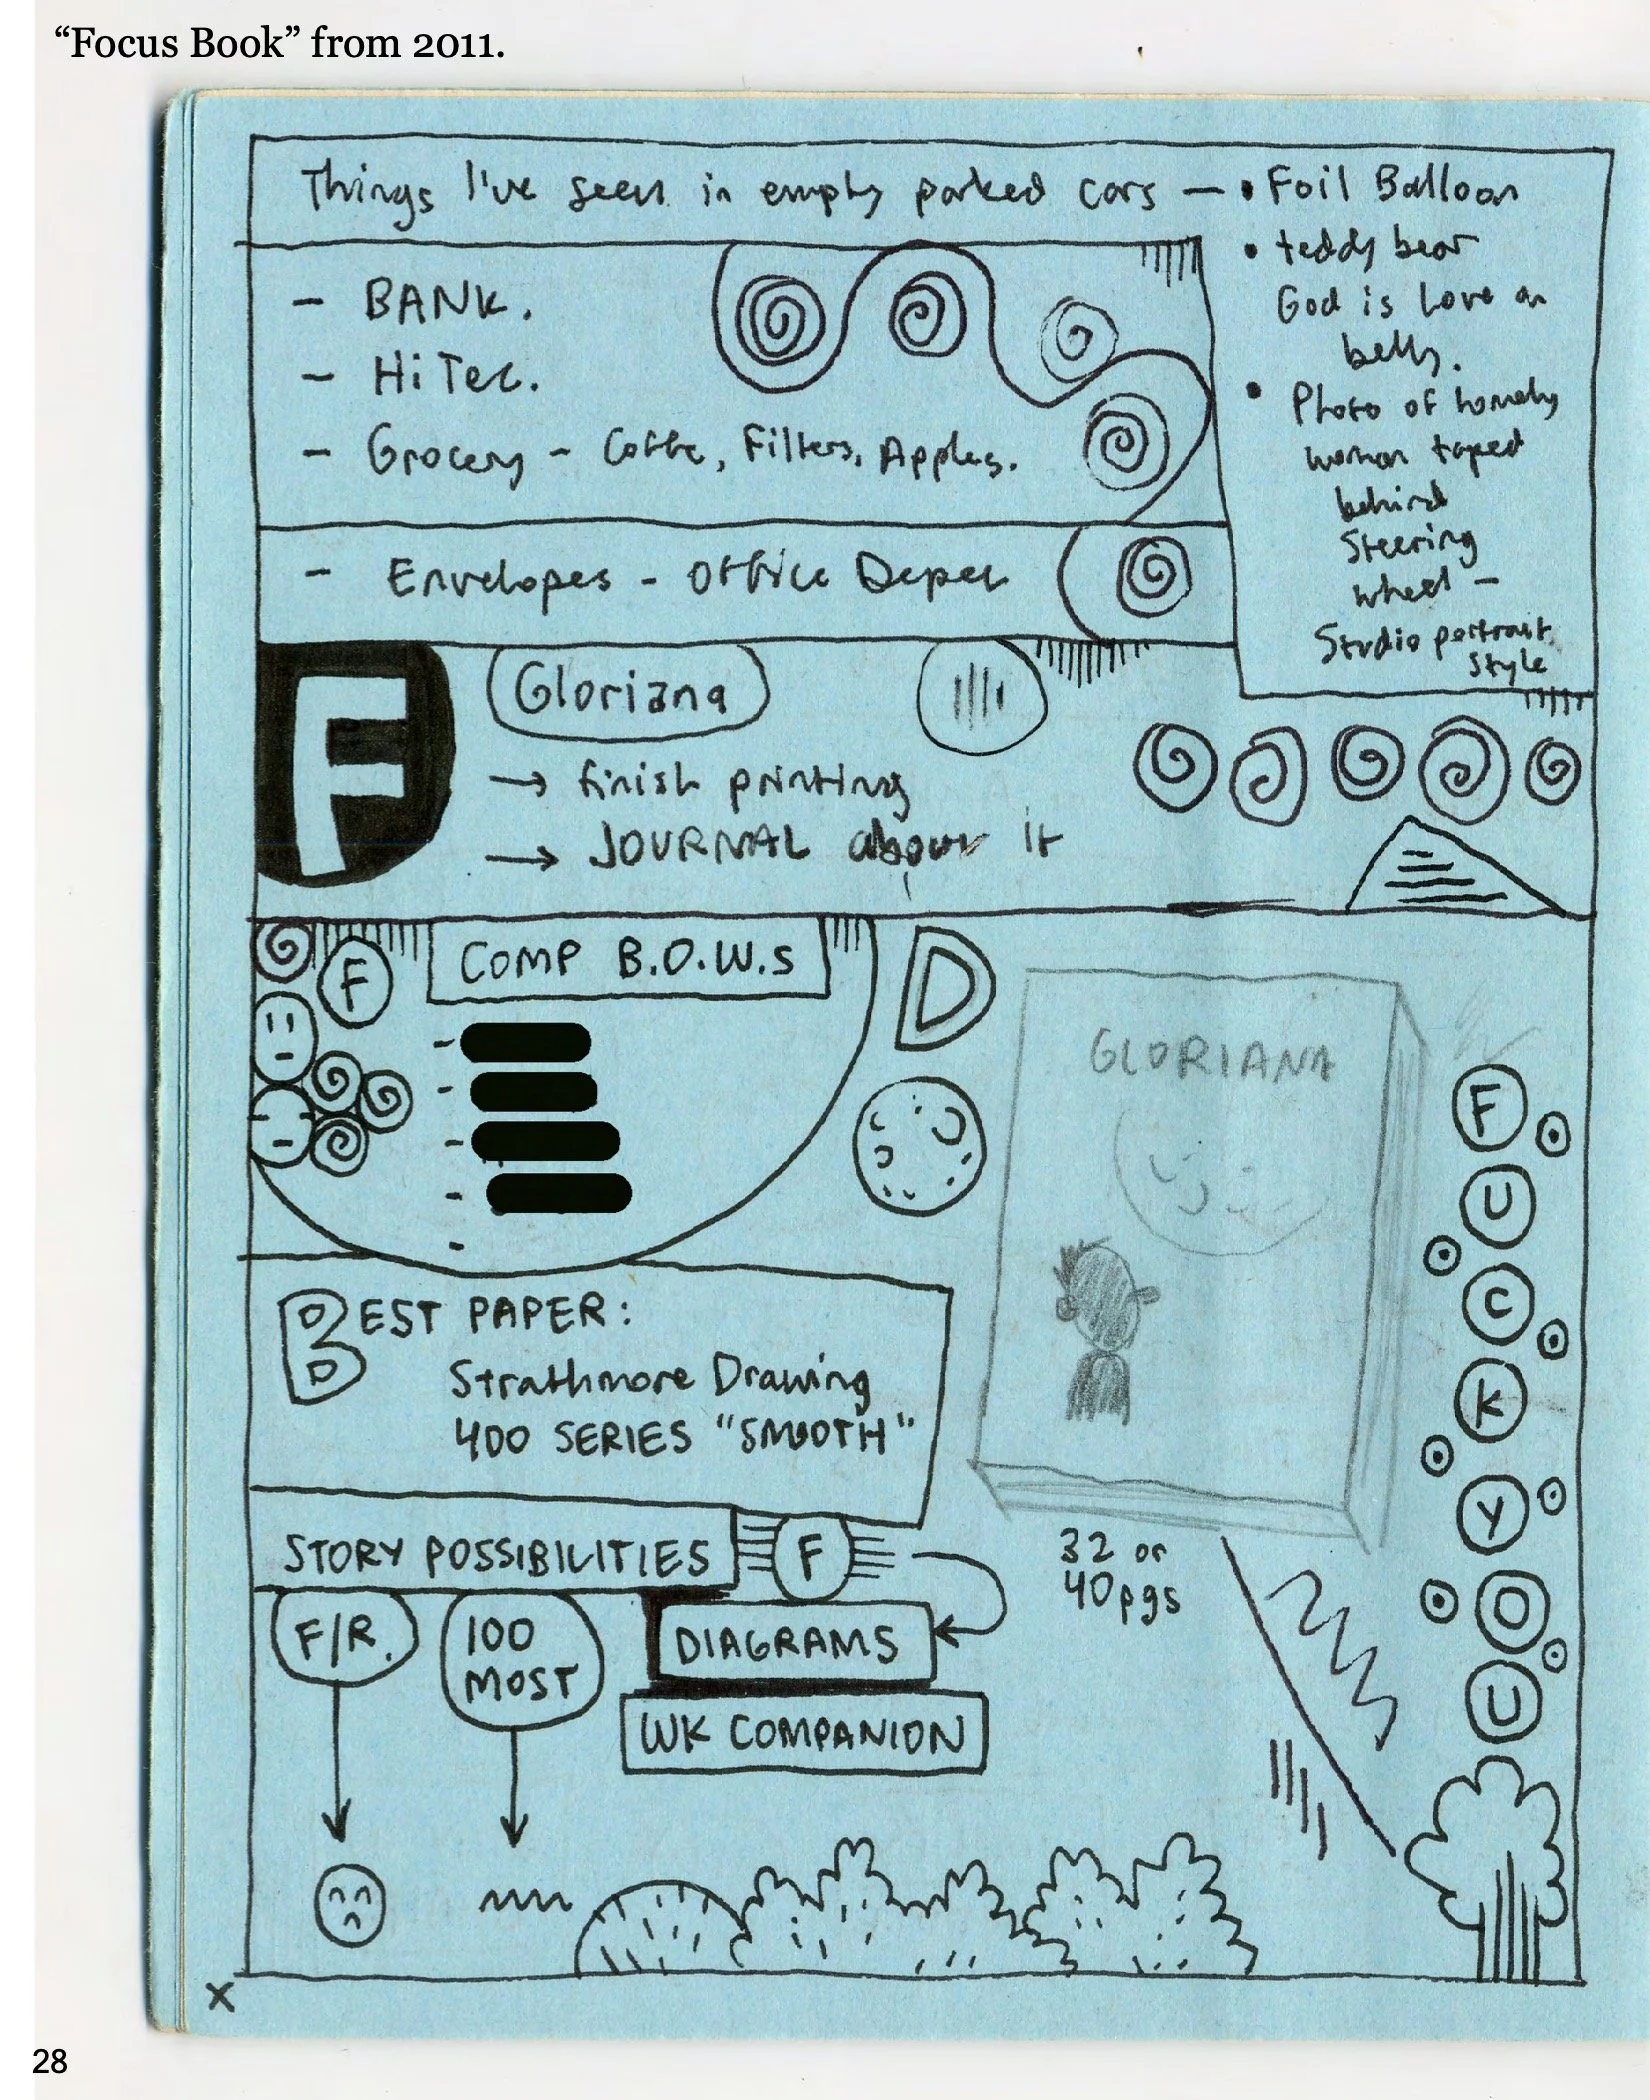 “Focus Book” from 2011.
Things I've seen in empty parked cars —
• Foil Balloon
• teddy bear
God is Love on
belly.
• Photo of homely
woman taped
behind
Steering
wheel —
Studio portrait
style
– BANK.
– Hi Tec.
– Grocery – Coffe, Filters, Apples.
– Envelopes – Office Depot
F
Gloriana
→ finish printing
→ JOURNAL about it
F
COMP B.O.W.s
D
GLORIANA
BEST PAPER:
Strathmore Drawing
400 SERIES "SMOOTH"
32 or
40 pgs
STORY POSSIBILITIES
F
F/R.
100
MOST
DIAGRAMS
WK COMPANION
F
U
C
K
Y
O
U
X
28